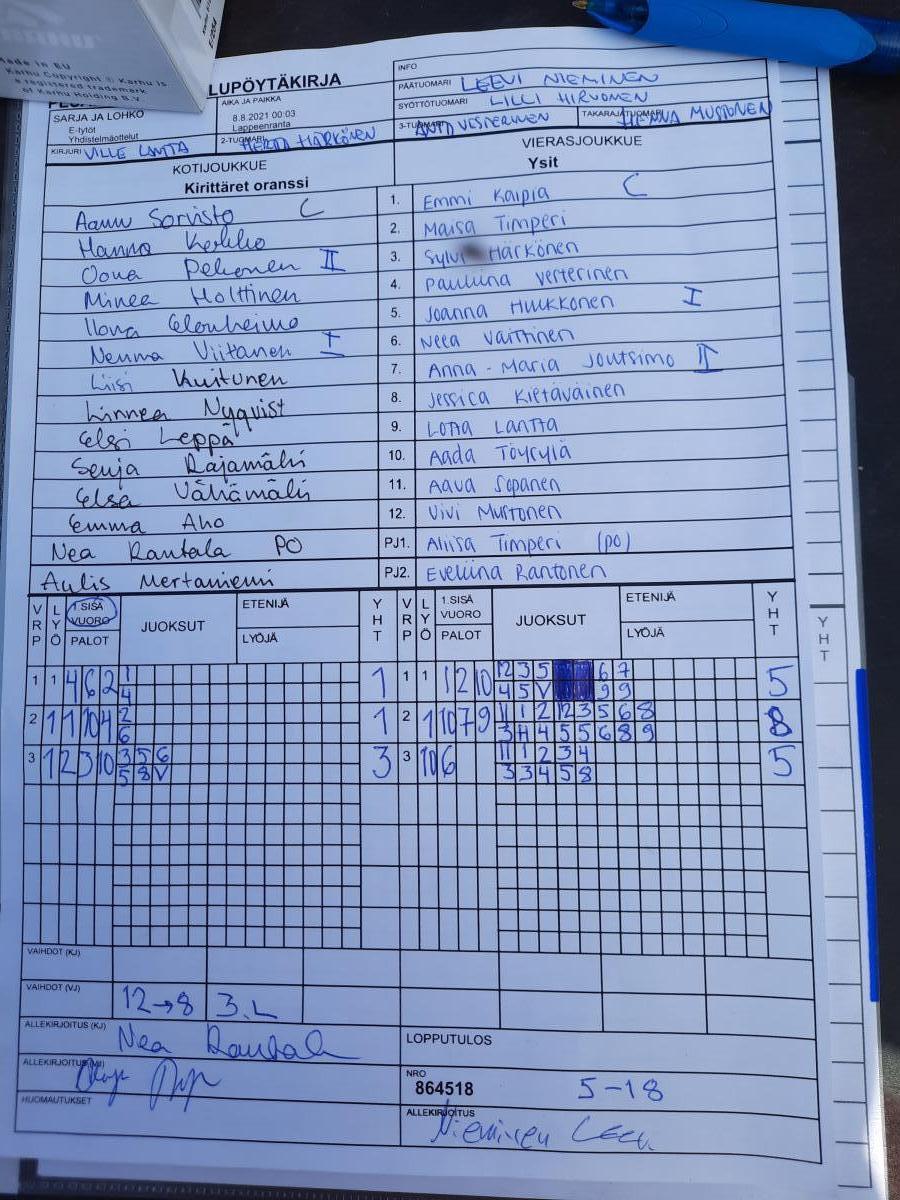 Made in EU
Karhu Copyright © Karhu is
a registered trademark
of Karhu Holding B.V.
LUPÖYTÄKIRJA
INFO
PÄÄTUOMARI LEEVI NIEMINEN
SARJA JA LOHKO
E-tytöt
Yhdistelmäottelut
AIKA JA PAIKKA
8.8.2021 00:03
Lappeenranta
SYÖTTÖTUOMARI LILLI HIRVONEN
3-TUOMARI VESTERINEN
TAKARAJATUOMARI HENNA MUSTONEN
KIRJURI VILLE LANTTA
2-TUOMARI HÄRKÖNEN
KOTIJOUKKUE
Kirittäret oranssi
VIERASJOUKKUE
Ysit
Aamu Sorvisto C 1. Emmi Kaipia C
Hanna Kerkko 2. Maisa Timperi
Oona Pekonen II 3. Sylvi Härkönen
Minea Holttinen 4. Pauliina Verterinen
Ilona Elonheimo 5. Joanna Hulkkonen I
Nenna Viitanen I 6. Neea Vaittinen
Liisi Kuitunen 7. Anna-Maria Joutsimo II
Linnea Nyqvist 8. Jessica Kietäväinen
Elsi Leppä 9. Lotta Lantta
Senja Rajamäki 10. Aada Töyrylä
Elsa Vähämäki 11. Aava Sopanen
Emma Aho 12. Vivi Murtonen
Nea Rautala PO PJ1. Aliisa Timperi (PO)
Aulis Mertaniemi PJ2. Eveliina Rantonen
VRP LYÖ 1.SISÄ VUORO PALOT JUOKSUT ETENIJÄ LYÖJÄ YHT VRP LYÖ 1.SISÄ VUORO PALOT JUOKSUT ETENIJÄ LYÖJÄ YHT
YHT
1 1 4 6 2 1 1 1 1 1 2 10 12 3 5 6 7 5
4 4 5 V 9 9
2 11 1 10 4 2 1 2 1 10 7 9 11 1 2 12 3 5 6 8 8
6 3 4 4 5 5 6 8 9
3 1 2 3 10 3 5 6 3 3 10 6 11 1 2 3 4 5
5 8 V 3 3 4 5 8
VAIHDOT (KJ)
VAIHDOT (VJ) 12→8 3.L
ALLEKIRJOITUS (KJ) Nea Rautala
LOPPUTULOS
ALLEKIRJOITUS (VJ)
NRO
864518 5-18
HUOMAUTUKSET
ALLEKIRJOITUS Nieminen Leevi